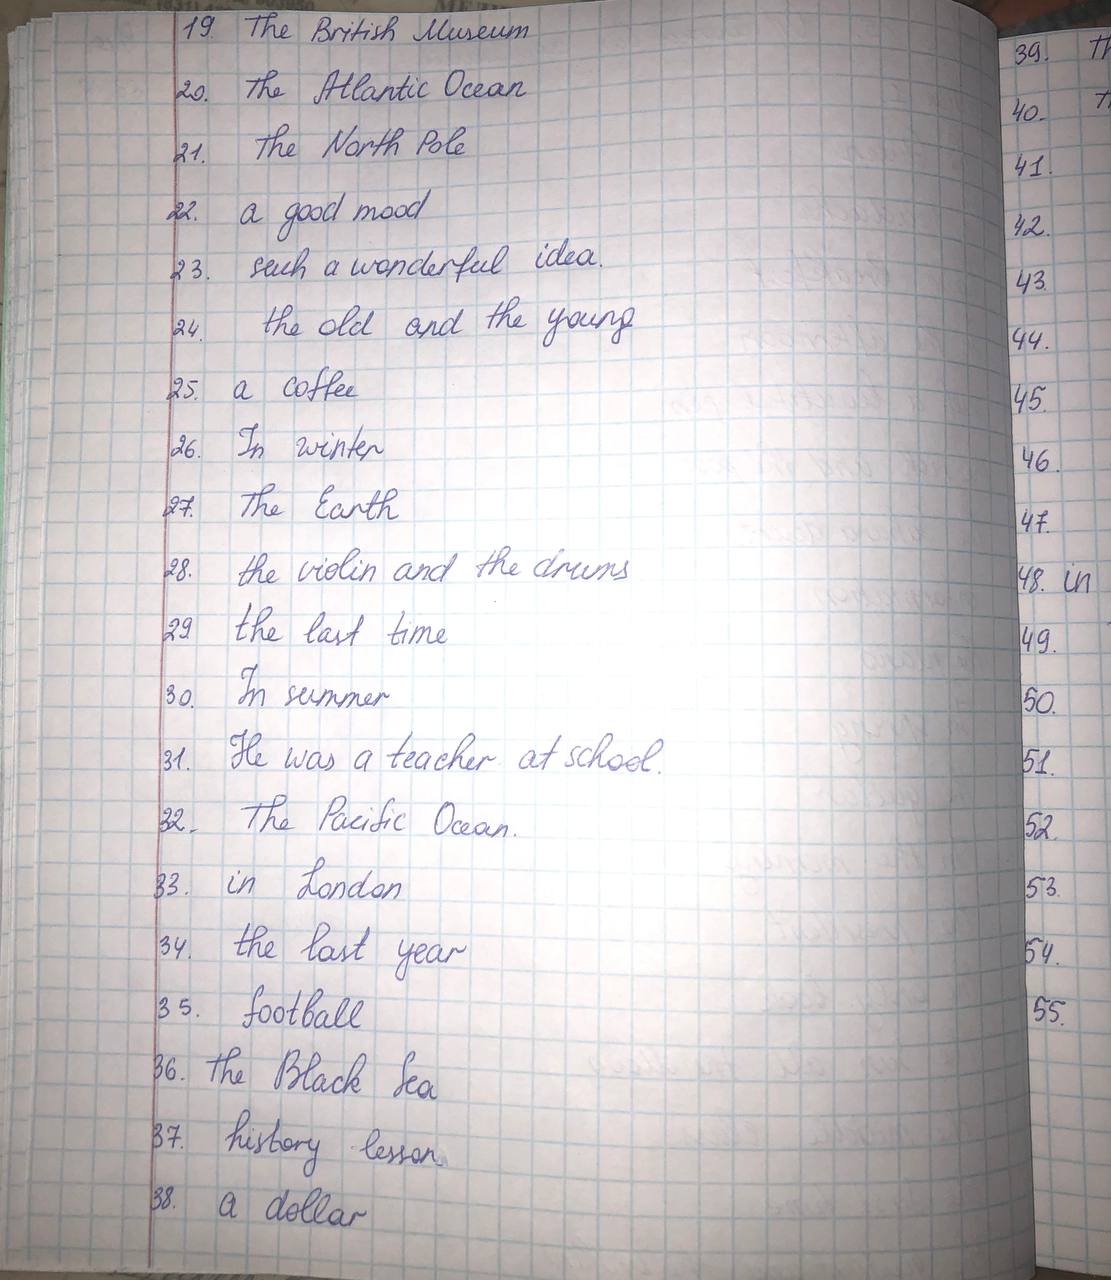 19. The British Museum
20. The Atlantic Ocean
21. The North Pole
22. a good mood
23. such a wonderful idea.
24. the old and the young
25. a coffee
26. In winter
27. The Earth
28. the violin and the drums
29 the last time
30. In summer
31. He was a teacher at school.
32. The Pacific Ocean.
33. in London
34. the last year
35. football
36. the Black Sea
37. history lesson
38. a dollar
39.
40.
41.
42.
43.
44.
45.
46.
47.
48. in
49.
50.
51.
52.
53.
54.
55.